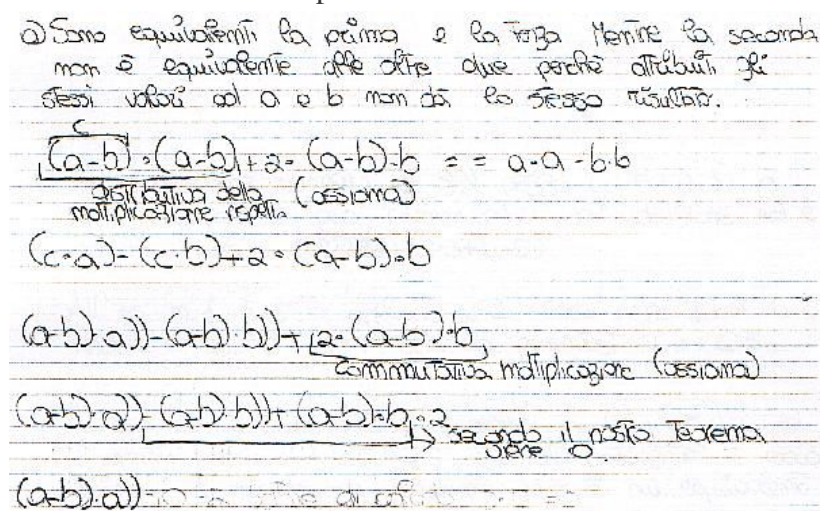 a) Sono equivalenti la prima e la terza mentre la seconda
non è equivalente alle altre due perchè attribuiti gli
stessi valori ad a e b non dà lo stesso risultato.
c
(a-b)·(a-b)+2·(a-b)·b = = a·a-b·b
distributiva della
moltiplicazione rispetto (assioma)
(c·a)-(c·b)+2·(a-b)·b
(a-b)·a))-(a-b)·b))+2·(a-b)·b
commutativa moltiplicazione (assioma)
(a-b)·a))-(a-b)·b))+(a-b)·b·2
secondo il nostro teorema
viene 0
(a-b)·a))